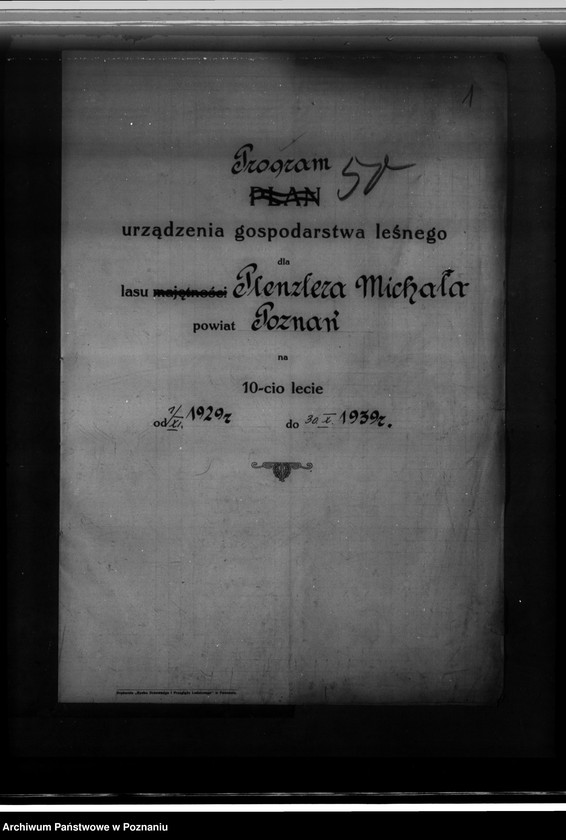 1
Program
PLAN
urządzenia gospodarstwa leśnego
dla
lasu majętności Plenzlera Michała
powiat Poznań
na
10-cio lecie
od 1/XI. 1929r do 30.X. 1939r.
Archiwum Państwowe w Poznaniu